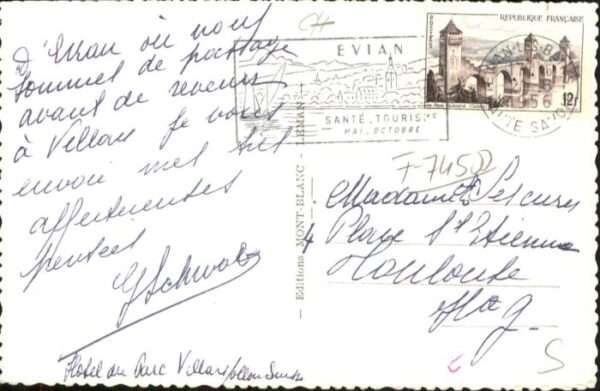 D'Evian où nous
sommes de passage
avant de revenir
à Villars je vous
envoie mes très
affectueuses
pensées
GSchwab
Hôtel du Parc Villars s/ollon Suisse
EVIAN
SANTÉ. TOURISME
MAI. OCTOBRE
LÉMAN
POSTES
REPUBLIQUE FRANÇAISE
12f
Editions MONT-BLANC - LEMAN
F-7458
Madame
4 Place St Etienne
Toulouse
Hte G
S